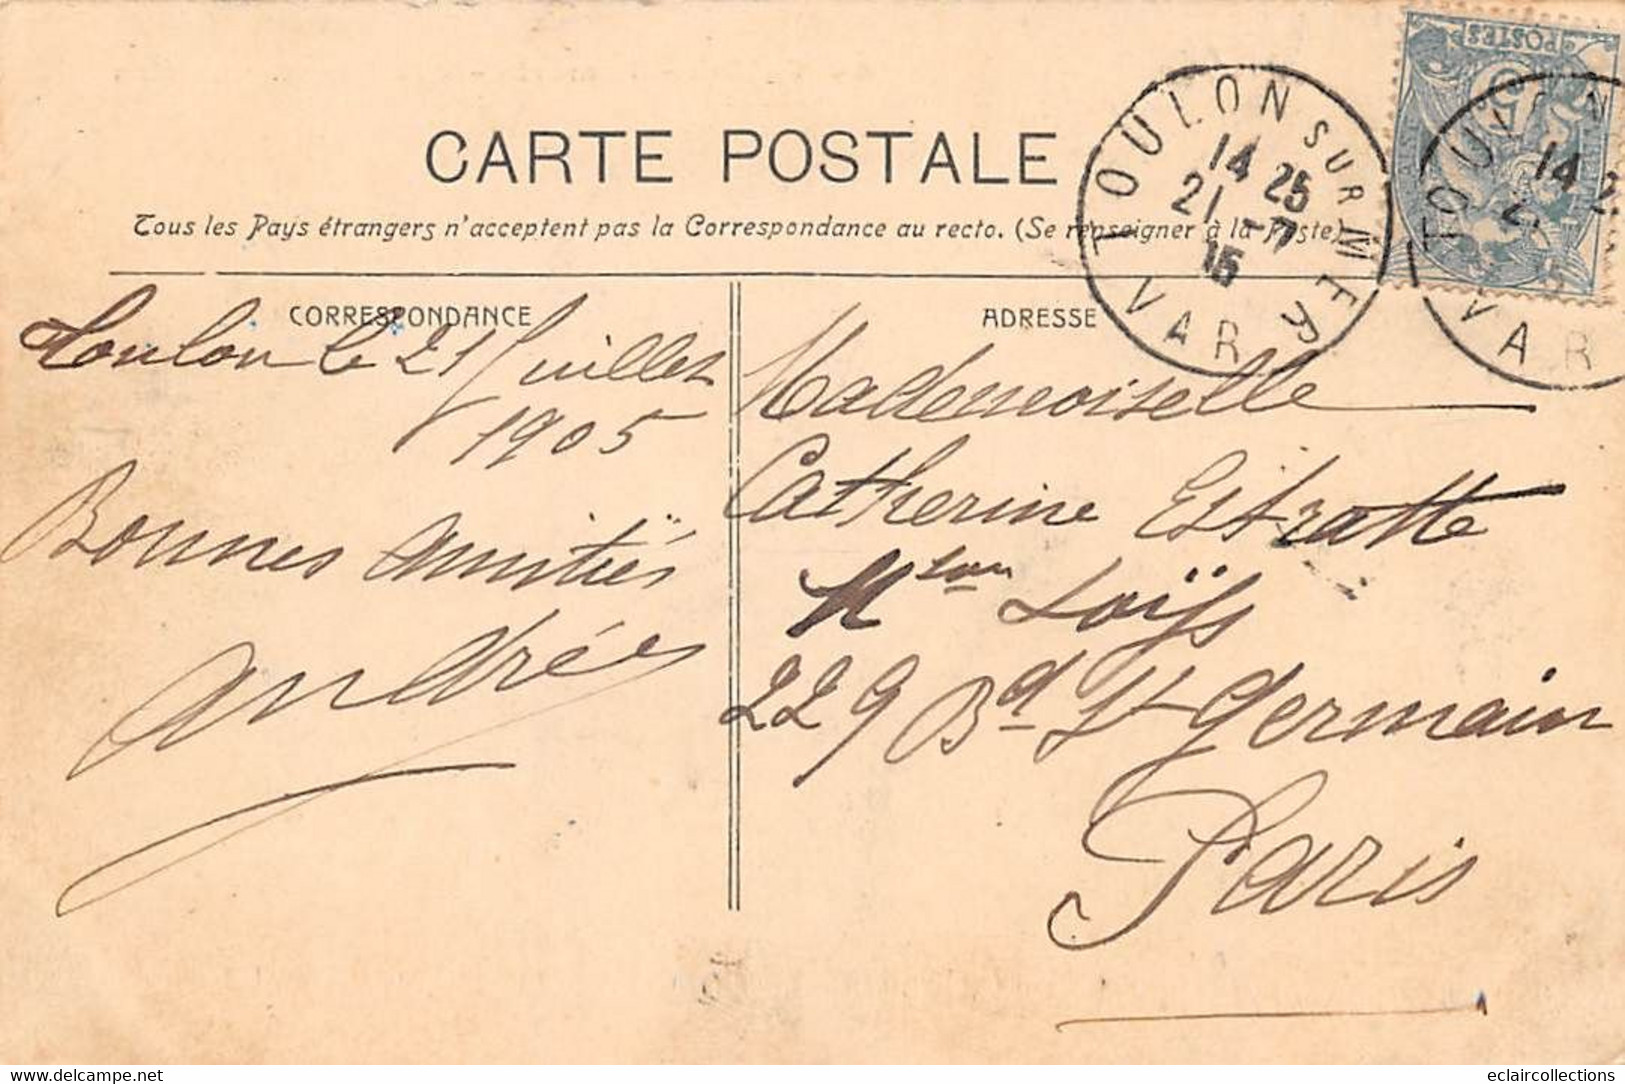 CARTE POSTALE
Tous les Pays étrangers n'acceptent pas la Correspondance au recto. (Se renseigner à la Poste)
CORRESPONDANCE
Toulon le 21 Juillet
1905
Bonnes amitiés
Andrée
ADRESSE
Mademoiselle
Catherine Estratte
Mson Loïss
229 Bd St Germain
Paris
TOULON SUR MER
14 25
21 -7
15
VAR
POSTES
TOULON
14 2
VAR
Tous droits réservés
eclaircollections